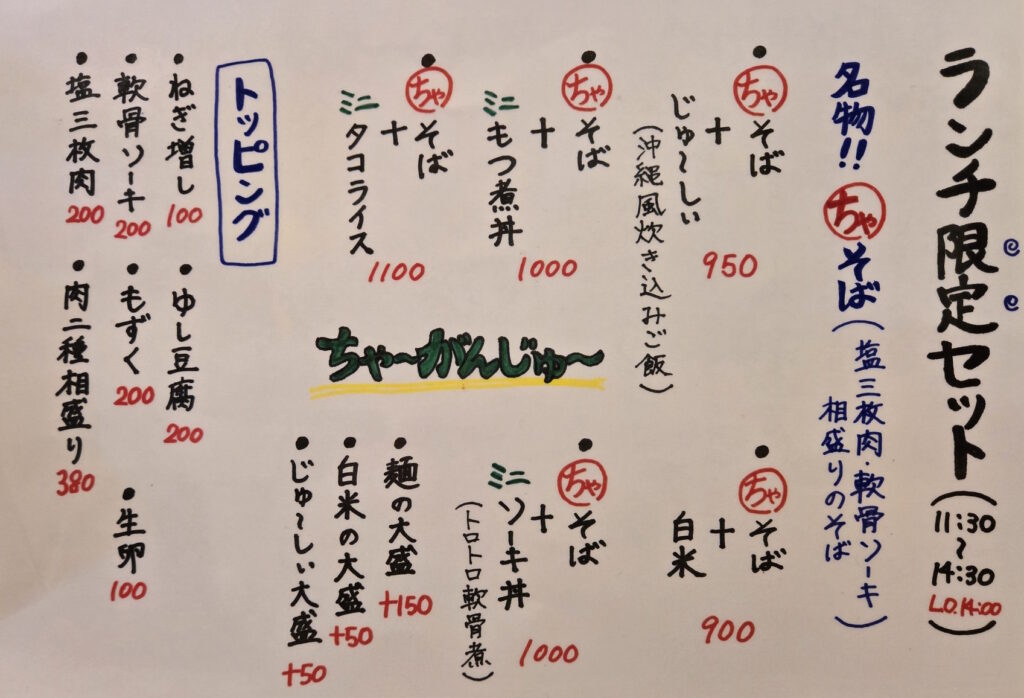 ランチ限定セット(11:30〜14:30 L.O.14:00)
名物!!ちゃそば(塩三枚肉・軟骨ソーキ
相盛りのそば)
・ちゃそば
+
じゅ〜しぃ
(沖縄風炊き込みご飯)
950
・ちゃそば
+
ミニもつ煮丼
1000
・ちゃそば
+
ミニタコライス
1100
ちゃ〜がんじゅ〜
・ちゃそば
+
白米
900
・ちゃそば
+
ミニソーキ丼
(トロトロ軟骨煮)
1000
・麺の大盛+150
・白米の大盛+50
・じゅ〜しぃ大盛+50
トッピング
・ねぎ増し100
・ゆし豆腐200
・軟骨ソーキ200
・もずく200
・生卵100
・塩三枚肉200
・肉二種相盛り380